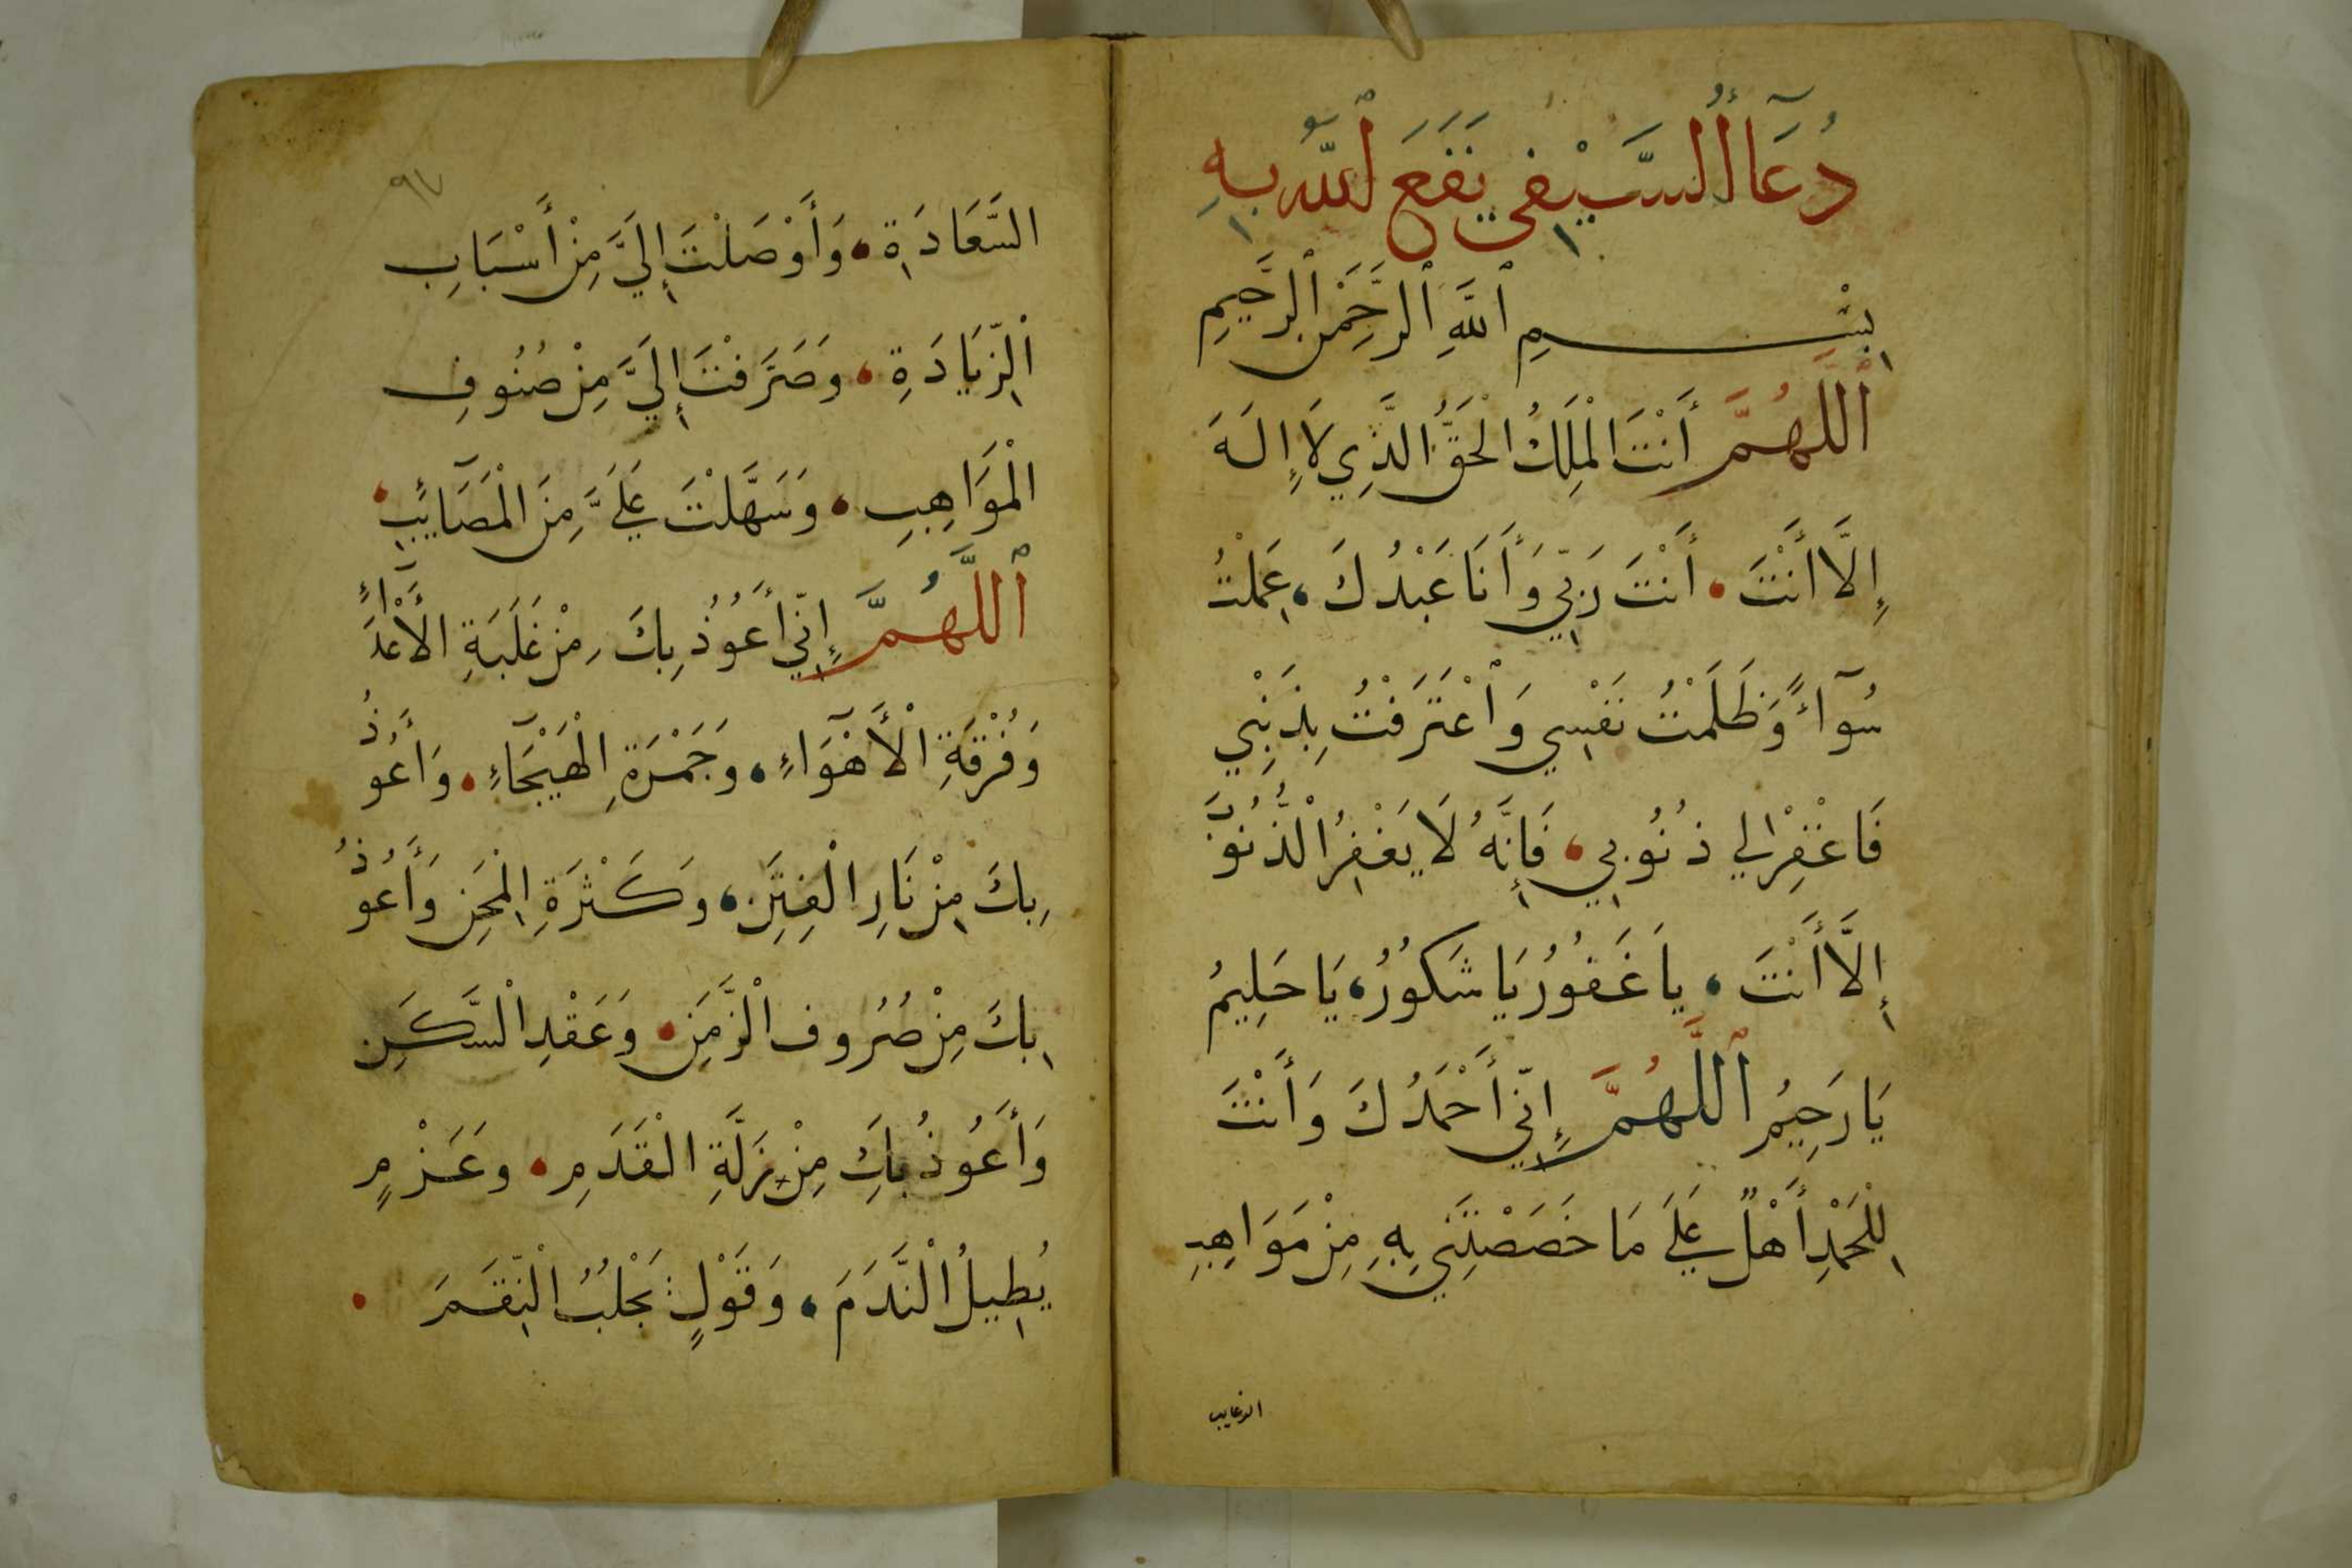 دُعَآأُ السَّيْفِي نَفَعَ اللّٰهُ بِهِ
بِسْمِ ٱللَّهِ ٱلرَّحْمَٰنِ ٱلرَّحِيمِ
ٱللَّهُمَّ أَنْتَ الْمَلِكُ الْحَقُّ الَّذِي لَا إِلَهَ
إِلَّا أَنْتَ أَنْتَ رَبِّي وَأَنَا عَبْدُكَ عَمِلْتُ
سُوآءً وَظَلَمْتُ نَفْسِي وَٱعْتَرَفْتُ بِذَنْبِي
فَاغْفِرْ لِي ذُنُوبِي فَإِنَّهُ لَا يَغْفِرُ الْذُّنُوبَ
إِلَّا أَنْتَ يَا غَفُورُ يَا شَكُورُ يَا حَلِيمُ
يَا رَحِيمُ ٱللَّهُمَّ إِنِّي أَحْمَدُكَ وَأَنْتَ
لِلْحَمْدِ أَهْلٌ عَلَى مَا خَصَصْتَنِي بِهِ مِنْ مَوَاهِبِ
الرغايب
٩٧
السَّعَادَةِ وَأَوْصَلْتَ إِلَيَّ مِنْ أَسْبَابِ
اْلزِّيَادَةِ وَصَرَفْتَ إِلَيَّ مِنْ صُنُوفِ
الْمَوَاهِبِ وَسَهَّلْتَ عَلَيَّ مِنَ الْمَصَآيِبِ
ٱللَّهُمَّ إِنِّي أَعُوُذُ بِكَ مِنْ غَلَبَةِ الْأَعْدَآءِ
وَفُرْقَةِ الْأَهْوَآءِ وَجَمْرَةِ الْهَيْجَآءِ وَأَعُوذُ
بِكَ مِنْ نَارِ الْفِتَنِ وَكَثْرَةِ الْمِحَنِ وَأَعُوذُ
بِكَ مِنْ صُرُوفِ الْزَّمَنِ وَعَقْدِ الْسَّكَنِ
وَأَعُوذُ بِكَ مِنْ زَلَّةِ الْقَدَمِ وَعَزْمٍ
يُطِيلُ الْنَّدَمَ وَقَوْلٍ يَجْلُبُ الْنِّقَمَ